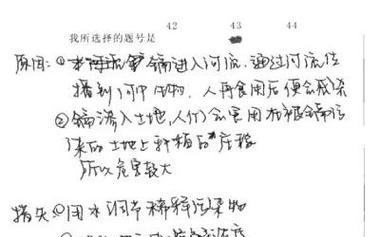 42 43 44
我所选择的题号是
原因:①镉进入河流,通过河流传
播到河中生物,人再食用后便会感染
②镉渗入土地,人们会食用在被镉污
染的土地上种植的庄稼
所以危害较大
措失:①用水调节稀释污染物